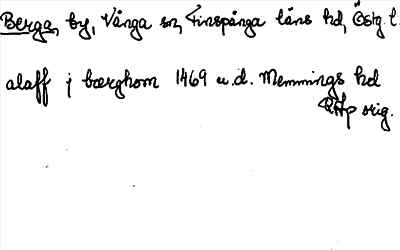 Berga, by, Vånga sn, Finspånga läns hd, Östg. l.
alaff j bærghom 1469 u.d. Memmings hd
RAp orig.